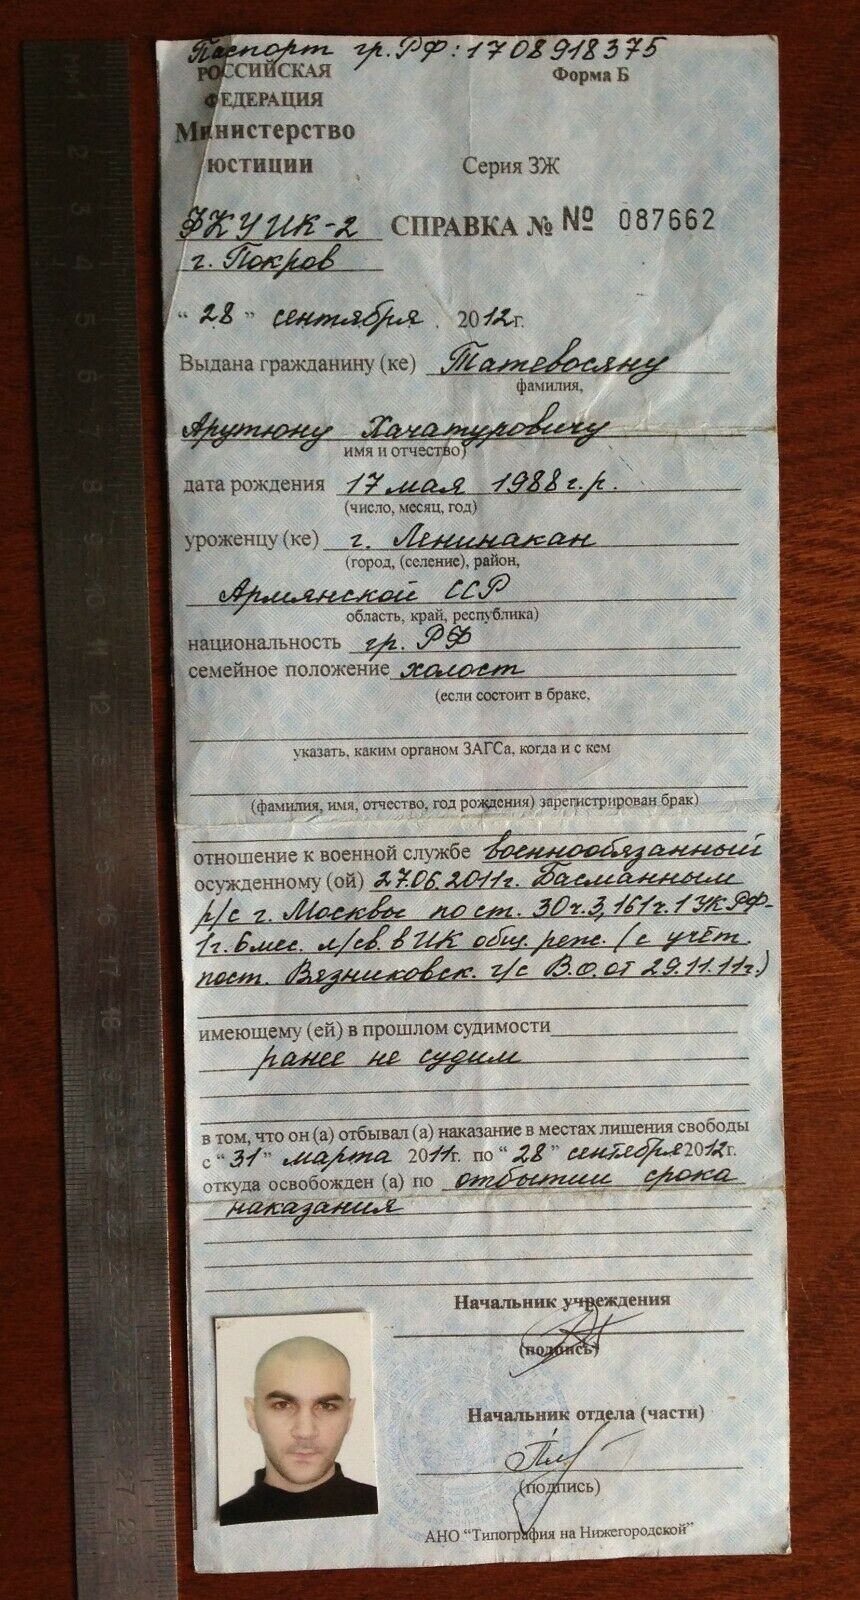 Паспорт гр.РФ: 1708918375
РОССИЙСКАЯ
Форма Б
ФЕДЕРАЦИЯ
Министерство
юстиции
Серия ЗЖ
ФКУ ИК-2
СПРАВКА № № 087662
г. Покров
"28" сентября. 2012г.
Выдана гражданину (ке) Татевосяну
фамилия,
Арутюну Хачатуровичу
имя и отчество)
дата рождения 17 мая 1988г.р.
(число, месяц, год)
уроженцу (ке) г. Ленинакан
(город, (селение), район,
Армянской ССР
область, край, республика)
национальность гр. РФ
семейное положение холост
(если состоит в браке,
указать, каким органом ЗАГСа, когда и с кем
(фамилия, имя, отчество, год рождения) зарегистрирован брак)
отношение к военной службе военнообязанный
осужденному (ой) 27.06.2011г. Басманным
р/с г. Москвы по ст. 30 ч.3, 161 ч.1 УК РФ-
1г. 6 мес. л/св. в ИК общ. реж. (с учёт.
пост. Вязниковск. г/с В.О. от 29.11.11г.)
имеющему (ей) в прошлом судимости
ранее не судим
в том, что он (а) отбывал (а) наказание в местах лишения свободы
с "31" марта 2011г. по "28" сентября 2012г.
откуда освобожден (а) по отбытии срока
наказания
Начальник учреждения
(подпись)
Начальник отдела (части)
(подпись)
АНО "Типография на Нижегородской"